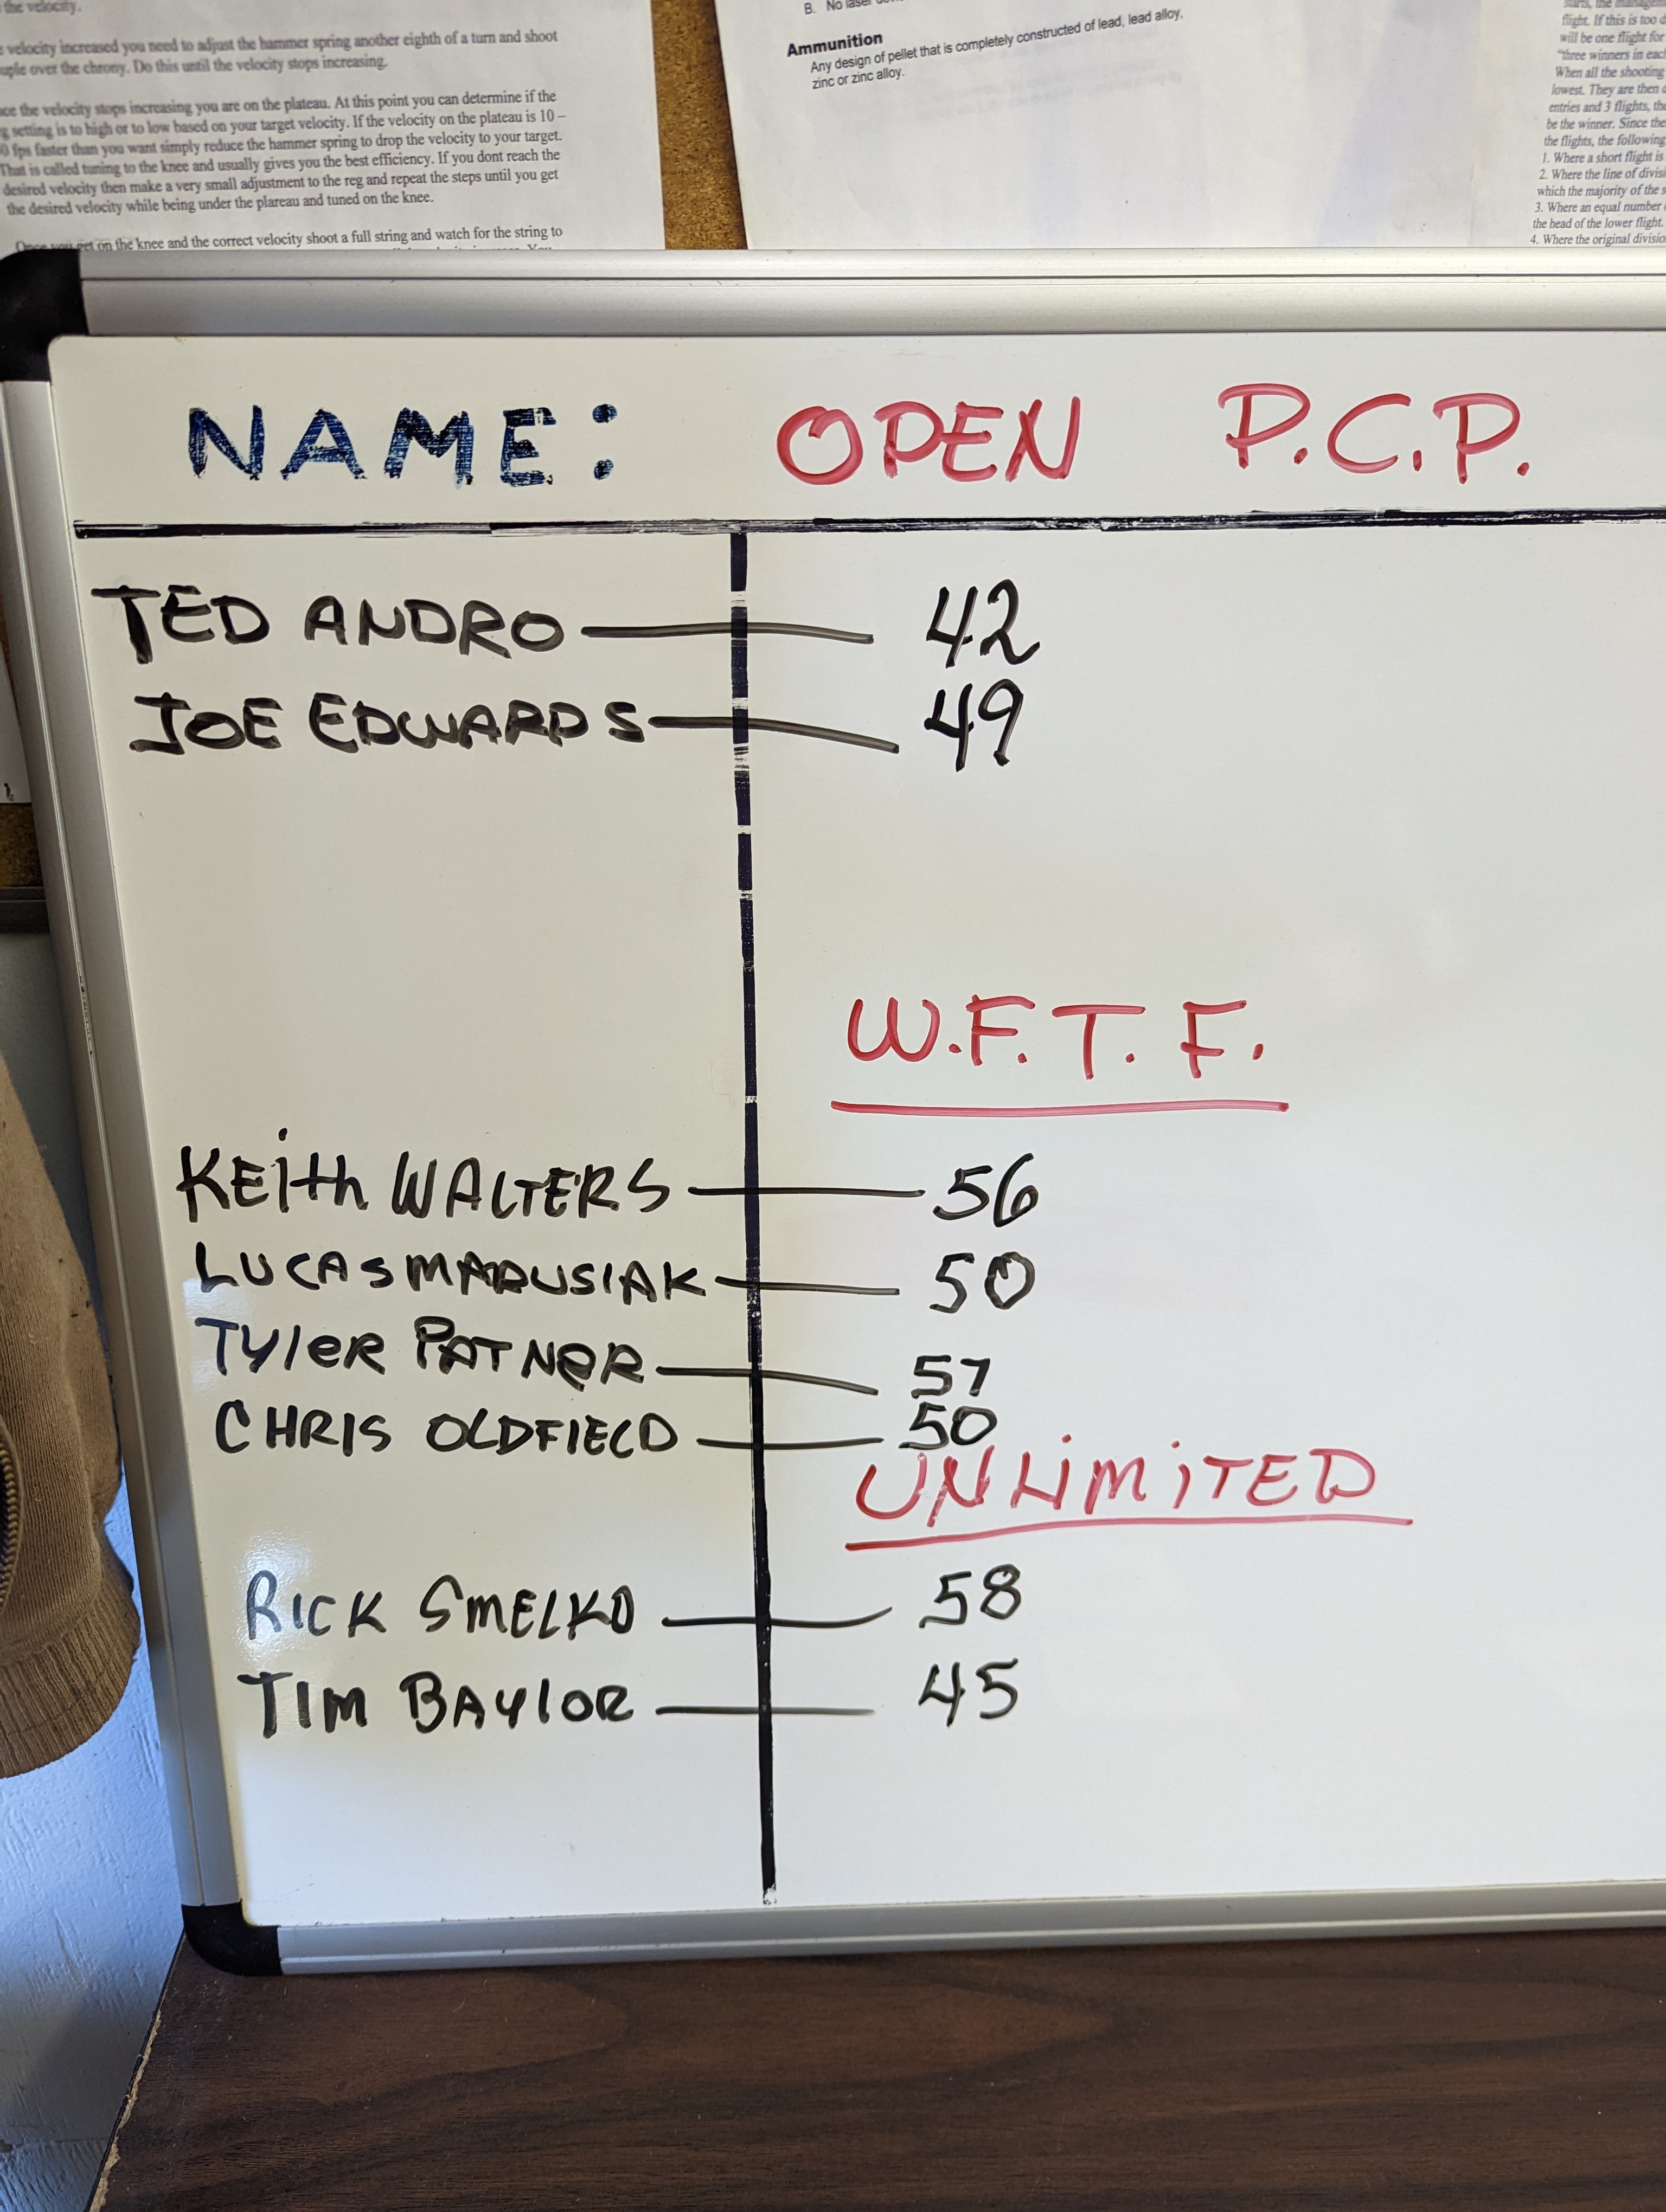 the velocity.
velocity increased you need to adjust the hammer spring another eighth of a turn and shoot
over the chrony. Do this until the velocity stops increasing.
the velocity stops increasing you are on the plateau. At this point you can determine if the
setting is to high or to low based on your target velocity. If the velocity on the plateau is 10 –
fps faster than you want simply reduce the hammer spring to drop the velocity to your target.
That is called tuning to the knee and usually gives you the best efficiency. If you dont reach the
desired velocity then make a very small adjustment to the reg and repeat the steps until you get
the desired velocity while being under the plareau and tuned on the knee.
Once you get on the knee and the correct velocity shoot a full string and watch for the string to
B. No laser
Ammunition
Any design of pellet that is completely constructed of lead, lead alloy,
zinc or zinc alloy.
flight. If this is too
will be one flight for
"three winners in each
When all the shooting
lowest. They are then
entries and 3 flights, the
be the winner. Since the
the flights, the following
1. Where a short flight is
2. Where the line of
which the majority of the
3. Where an equal number
the head of the lower flight.
4. Where the original
NAME: OPEN P.C.P.
TED ANDRO 42
JOE EDWARDS 49
W.F.T.F.
KEith WALTERS 56
LUCAS MARUSIAK 50
TYlER PATNER 57
CHRIS OLDFIELD 50
UNLiMiTED
RICK SMELKO 58
TIM BAYlOR 45